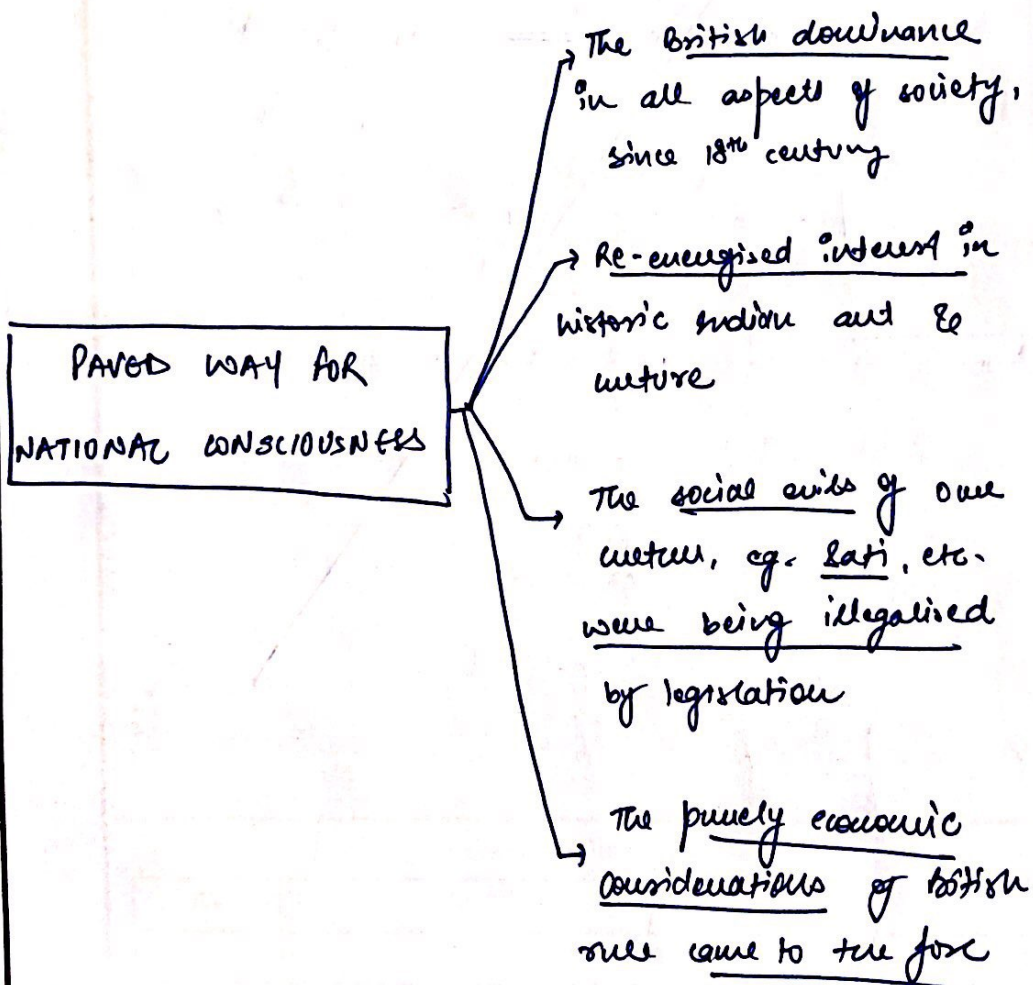 PAVED WAY FOR
NATIONAL CONSCIOUSNESS
The British dominance
in all aspects of society,
since 18th century
Re-energised interest in
historic Indian art &
culture
The social evils of our
culture, eg. Sati, etc.
were being illegalised
by legislation
The purely economic
considerations of British
rule came to the fore